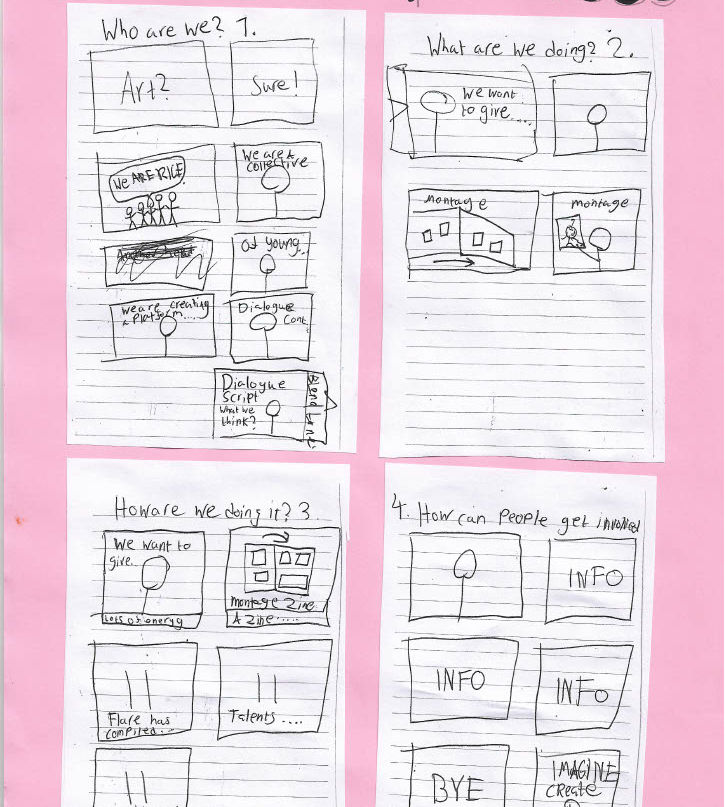 Who are we? 1.
Art?
Sure!
We ARE RICE!
We are a
collective
At young...
We are creating
a platform....
Dialogue
Cont.
Dialogue
Script
What we
think?
What are we doing? 2.
We want
to give....
montage
montage
How are we doing it? 3
We want to
give.
Lots of energy
montage zine
A zine.....
Flare has
compiled...
Talents....
4. How can people get involved
INFO
INFO
INFO
BYE
IMAGINE
Create